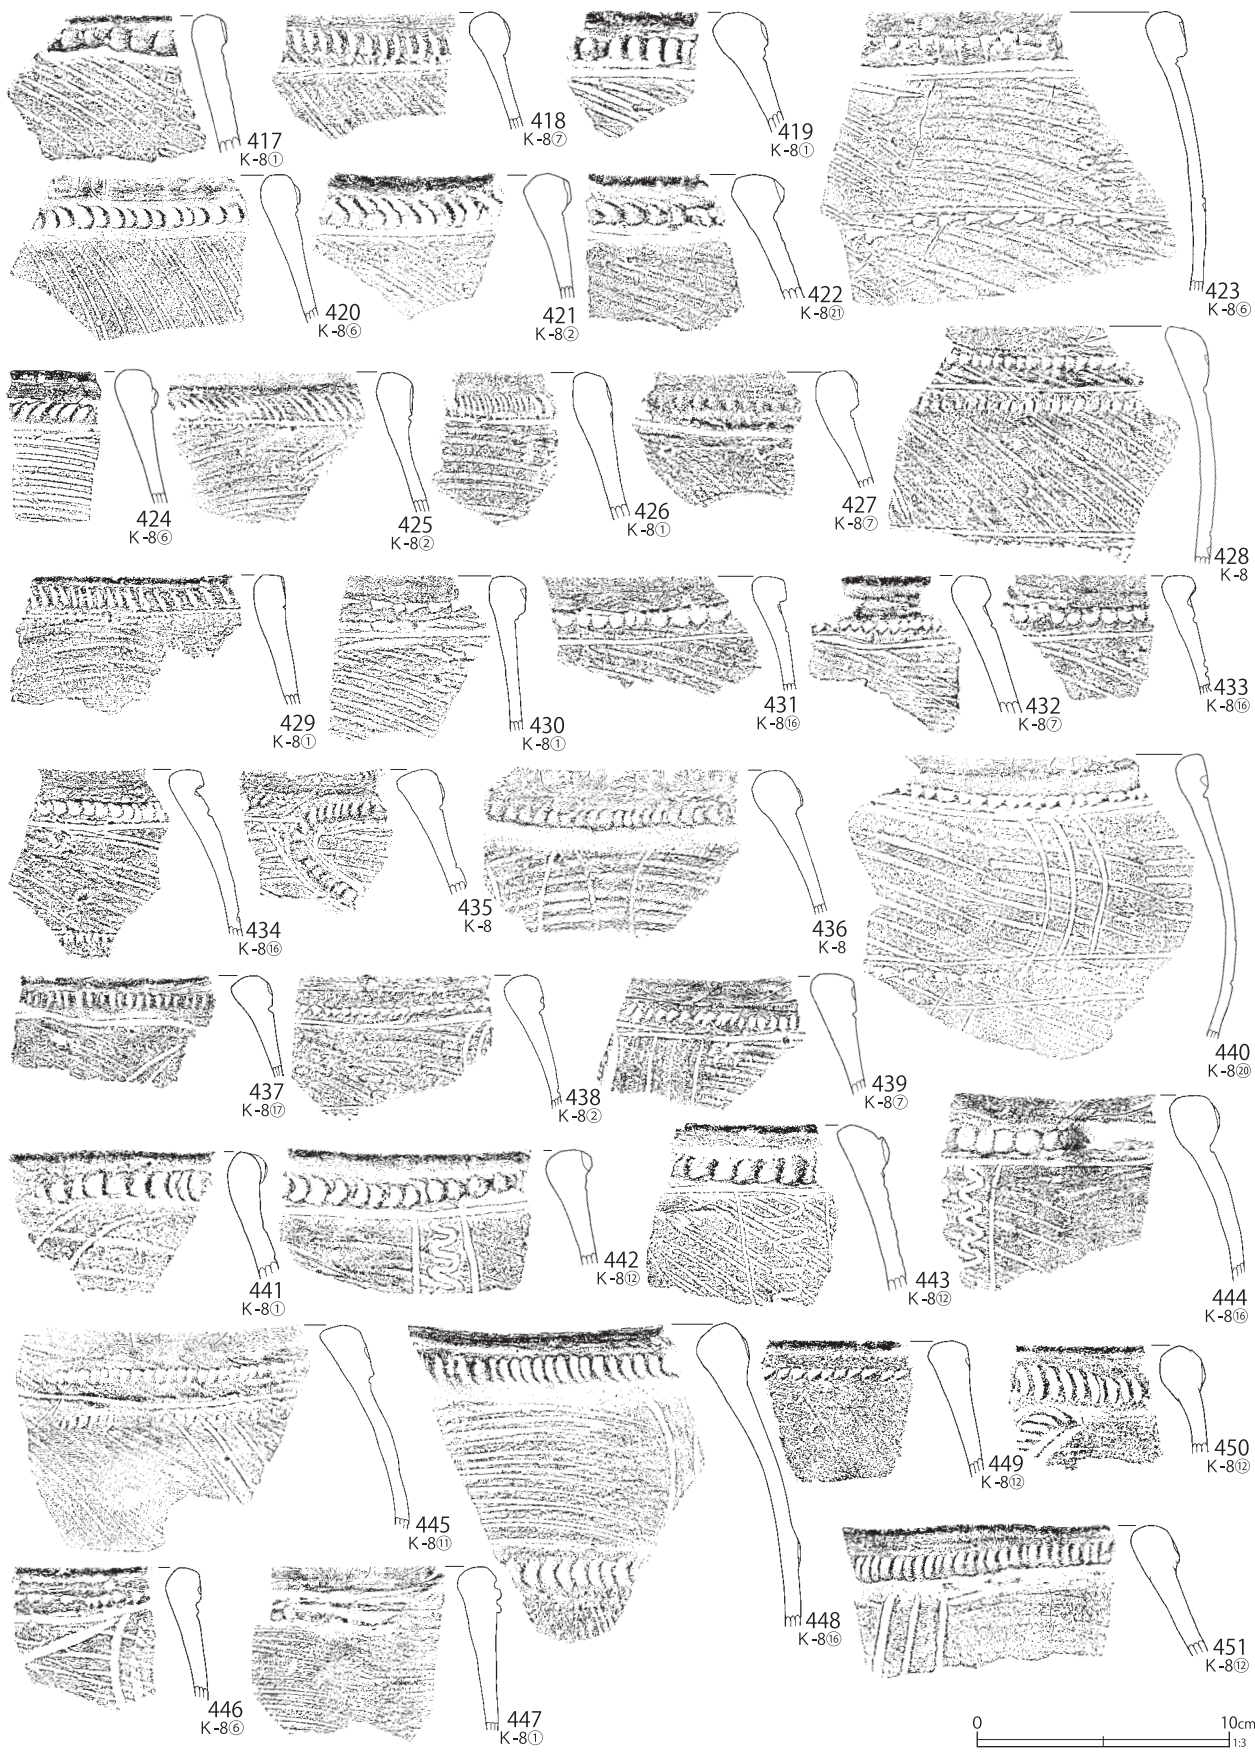 417
K-8①
418
K-8⑦
419
K-8①
423
K-8⑥
420
K-8⑥
421
K-8②
422
K-8㉑
424
K-8⑥
425
K-8②
426
K-8①
427
K-8⑦
428
K-8
429
K-8①
430
K-8①
431
K-8⑯
432
K-8⑦
433
K-8⑯
434
K-8⑯
435
K-8
436
K-8
440
K-8⑳
437
K-8⑰
438
K-8②
439
K-8⑦
441
K-8①
442
K-8⑫
443
K-8⑫
444
K-8⑯
445
K-8⑪
448
K-8⑯
449
K-8⑫
450
K-8⑫
446
K-8⑥
447
K-8①
451
K-8⑫
0 10cm
1:3